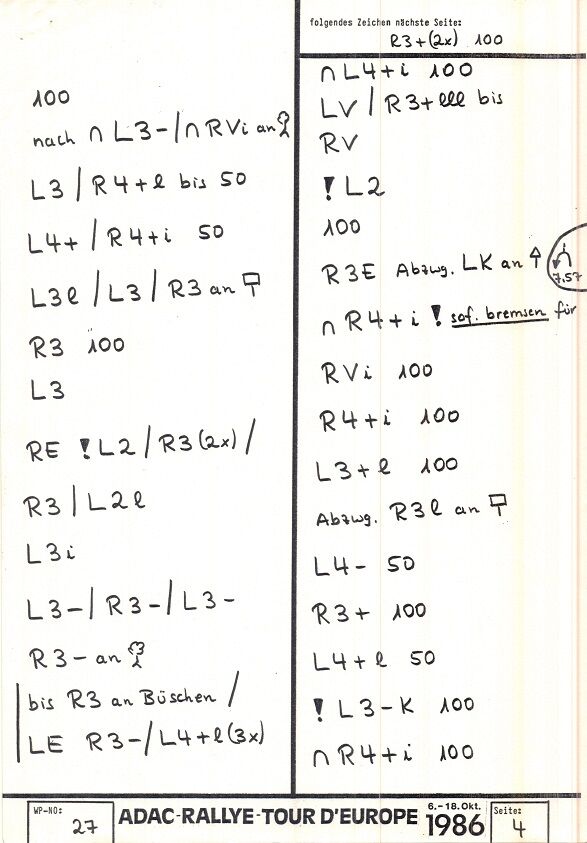 100
nach ∩ L3-/∩ RVi an
L3 / R4+l bis 50
L4+ / R4+i 50
L3l / L3 / R3 an
R3 100
L3
RE ! L2 / R3 (2x) /
R3 / L2l
L3i
L3-/ R3-/ L3-
R3- an
bis R3 an Büschen /
LE R3-/ L4+l (3x)
folgendes Zeichen nächste Seite:
R3+(2x) 100
∩ L4+i 100
LV / R3+lll bis
RV
! L2
100
R3E Abzwg. LK an
7,57
∩ R4+i ! sof. bremsen für
RVi 100
R4+i 100
L3+l 100
Abzwg. R3l an
L4- 50
R3+ 100
L4+l 50
! L3-K 100
∩ R4+i 100
WP-NO: 27
ADAC-RALLYE-TOUR D'EUROPE 6.-18.Okt. 1986
Seite: 4